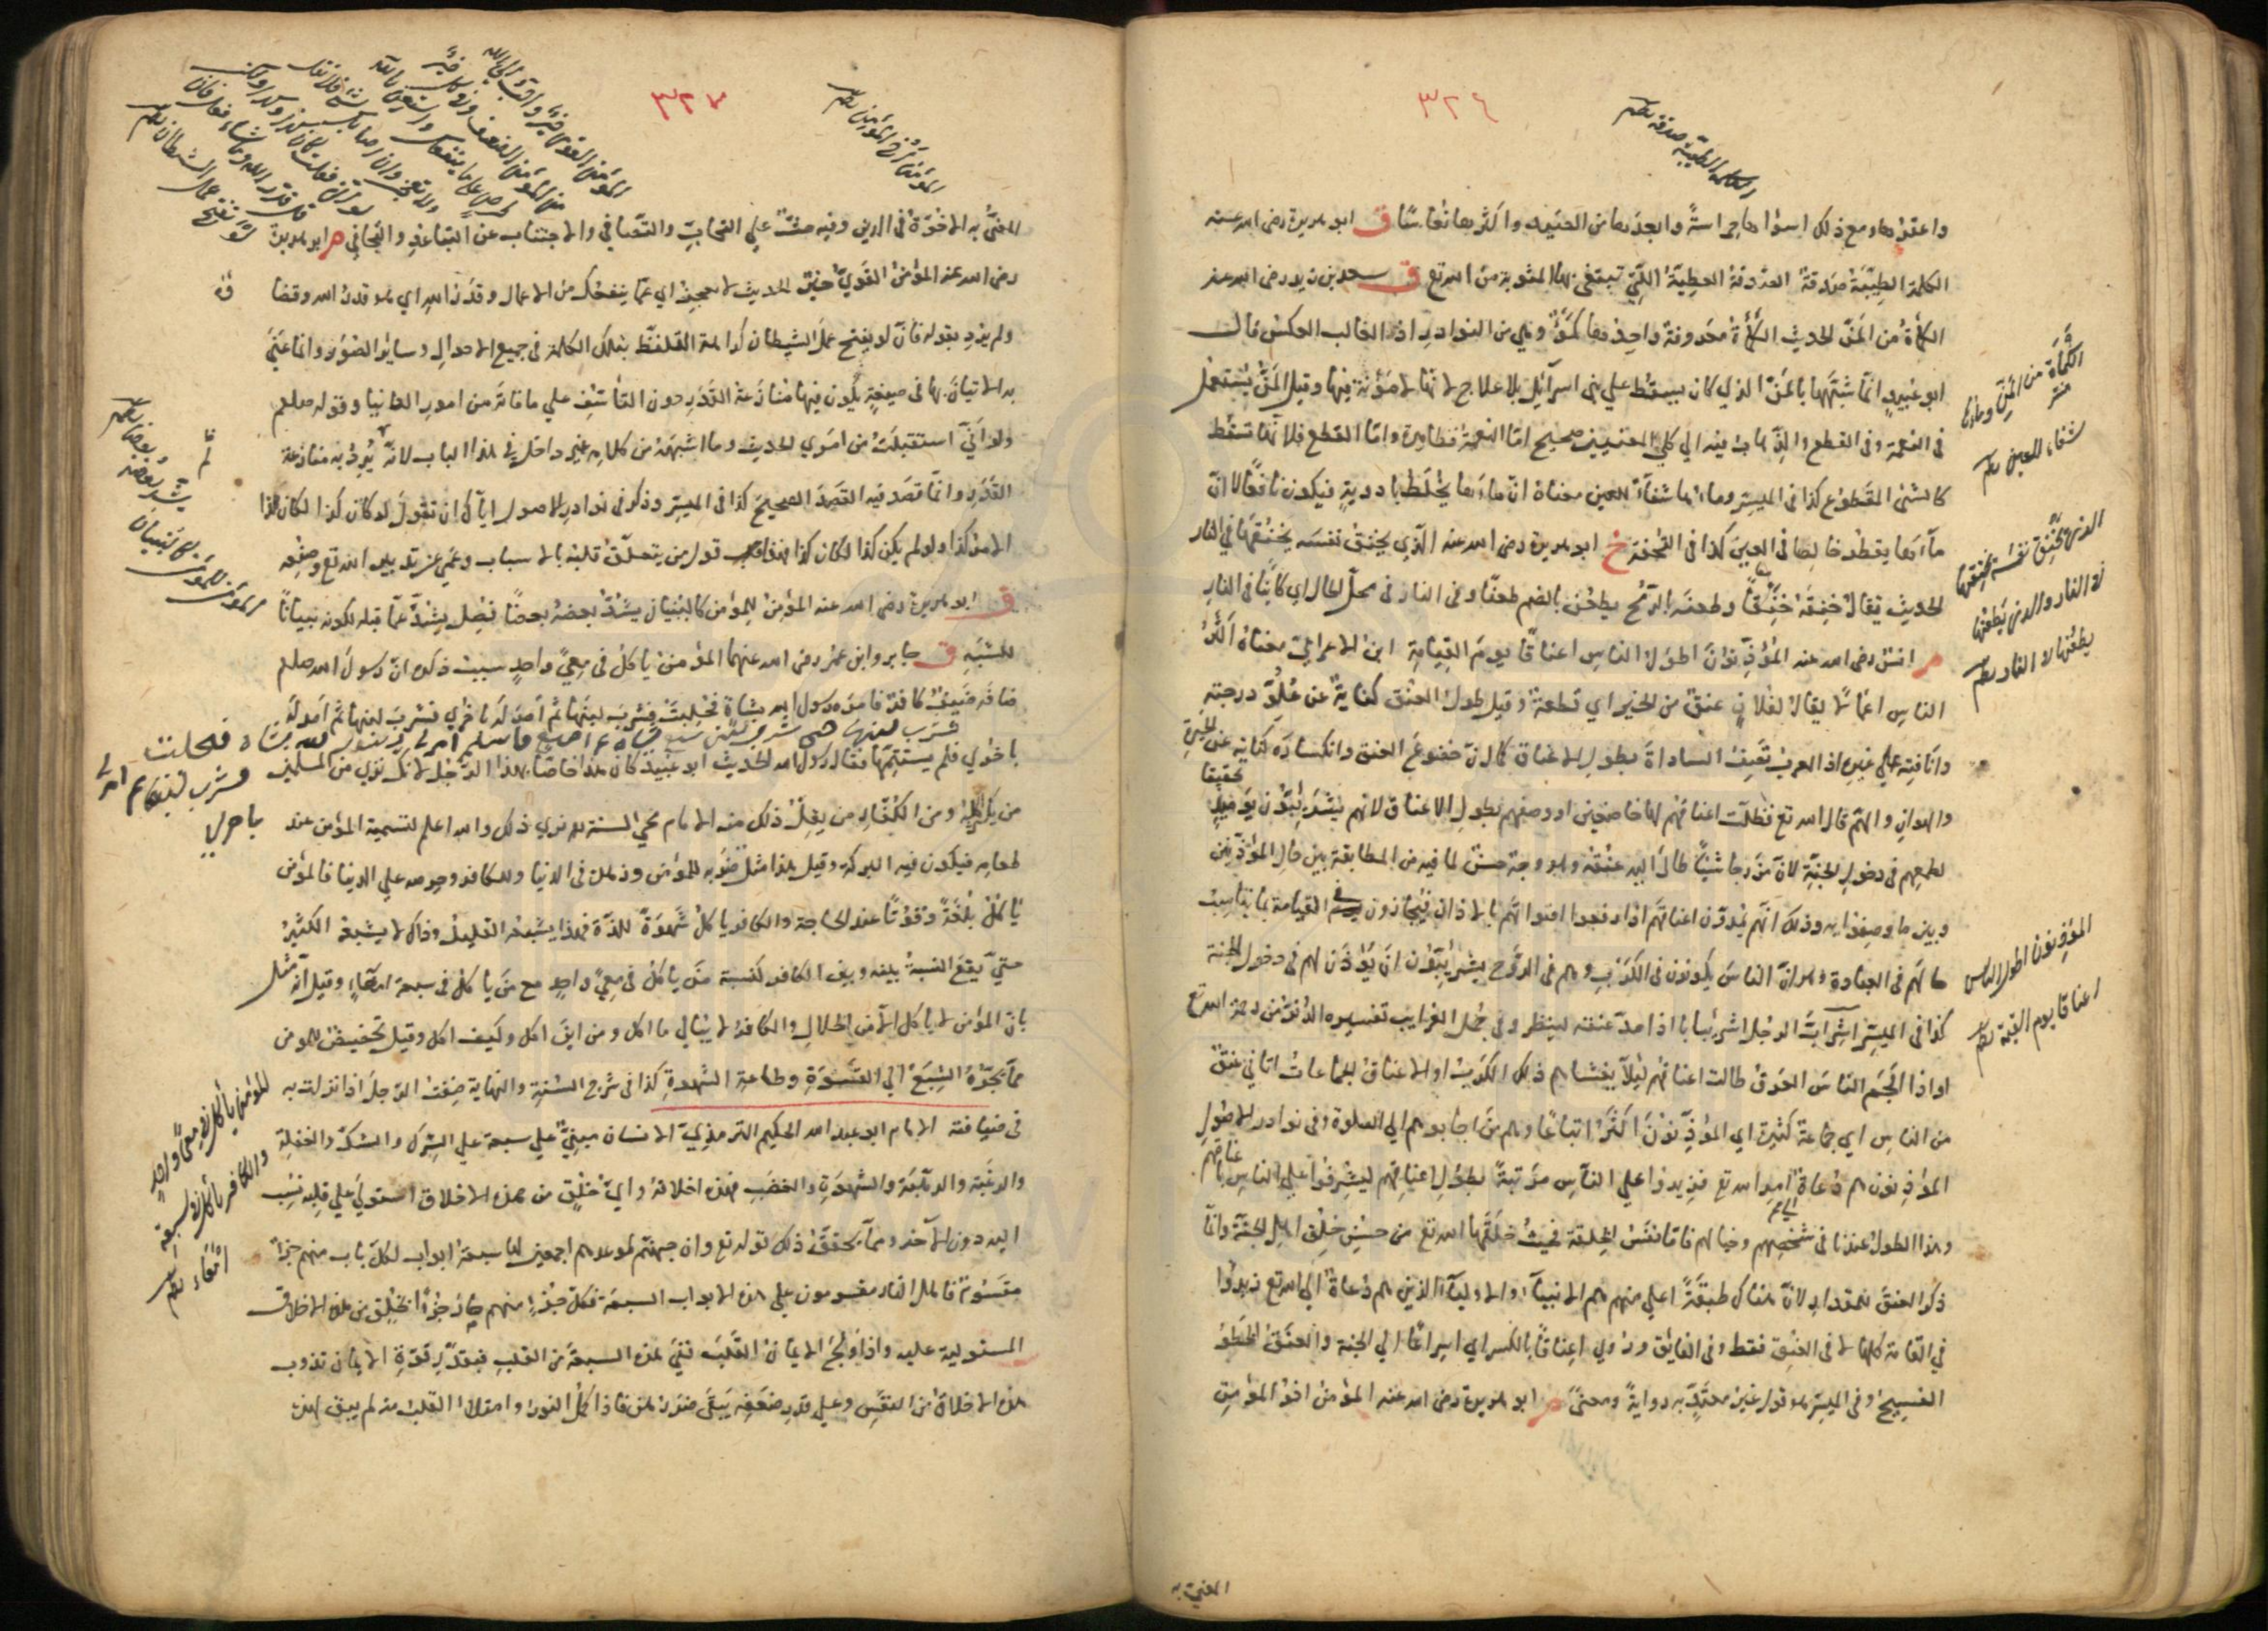 ٣٢٦
الكلمة الطيبة صدقة
واعقدها ومع ذلك اسوأها حراسة وابعدها من الصيد واكثرها نعاسا ق ابو هريرة رضى الله عنه
الكلمة الطيبة صدقة الصدقة العطية التي تبتغى بها المثوبة من الله تع ق سعد بن زيد رضى الله عنه
الكمأة من المن الحديث الكمأة معروفة واحدها كمؤ وهي من النوادر اذ الغالب العكس قال
ابو عبيد انما شبهها بالمن الذي كان يسقط علي بنى اسرآئيل بلا علاج لانها لا مؤنة فيها وقيل المن يستعمل
في النعمة وفي القطع والذى هاهنا فيه الي كلي المعنيين صحيح اما النعمة فظاهرة واما القطع فلانها تسقط
كالشئ المقطوع كذا في الميسر وماءها شفآء للعين معناه ان ماءها يخلط بادوية فيكون نافعا لا ان
مآءها يقطر خالصا في العين كذا في التحفة خ ابو هريرة رضى الله عنه الذي يخنق نفسه يخنقها في النار
الحديث يقال خنقه خنقا وطعنه بالرمح يطعن بالضم طعنا وفي النار في محل الحال اي كآينا في النار
م انس رضى الله عنه المؤذنون اطول الناس اعناقا يوم القيامة ابن الاعرابي معناه اكثر
الناس اعمالا يقال لفلان عنق من الخير اي قطعة وقيل طول العنق كناية عن علو درجته
وانافته علي غيره اذ العرب تصف السادات بطول الاعناق كما ان خضوع العنق وانكساره كناية عن الخيبة
والهوان والهم قال الله تع فظلت اعناقهم لها خاضعين او وصفهم بطول الاعناق لانهم يشرئبون يومئذ
لطمعهم في دخول الجنة لان من رجا شيئا طال اليه عنقه وهو وجه حسن لما فيه من المطابقة بين حال المؤذنين
وبين ما وصفوا به وذلك انهم يمدون اعناقهم اذا رفعوا اصواتهم بالاذان فيجازون في القيامة بما يناسب
حالهم في العبادة وهو ان الناس يكونون في الكرب وهم في الروح يشرئبون ان يؤذن لهم في دخول الجنة
كذا في الميسر اشراب الرجل اشرئبابا اذا مد عنقه لينظر وفي جمل الغرايب تفسيره الدنو من رحمة الله تع
او اذا الجم الناس العرق طالت اعناقهم ليلا يغشاهم ذلك الكرب او الاعناق الجماعات اتاني عنق
من الناس اي جماعة كثيرة اي المؤذنون اكثر اتباعا وهم من اجابوهم الي الصلوة وفي نوادر الاصول
المؤذنون هم دعاة الي امر الله تع فزيدوا علي الناس مرتبة بطول اعناقهم ليشرفوا علي الناس
وهذا الطول عندنا في شخصهم وجمالهم فاما نفس الخلقة فبحيث خلقها الله تع من حسن خلق اهل الجنة وانما
ذكر العنق للمقدار لان هناك طبقة اعلي منهم هم الانبيآء والاوليآء الذين هم دعاة الي الله تع زيدوا
في القامة كلها لا في العنق فقط وفي الفايق وروي اعناقا بالكسر اي اسراعا الي الجنة والعنق الخطو
الفسيح وفي الميسر هو قول غير معتد به رواية ومعنى م ابو هريرة رضى الله عنه المؤمن اخو المؤمن
المعني به
الكمأة من المن وماءها
شفاء للعين
الذى يخنق نفسه يخنقها
في النار والذى يطعنها
يطعنها في النار
المؤذنون اطول الناس
اعناقا يوم القيمة
٣٢٧
المؤمن اخ المؤمن
المؤمن القوى خير واحب الى الله
من المؤمن الضعيف وفى كل خير
احرص على ما ينفعك واستعن بالله
ولا تعجز وان اصابك شئ فلا تقل
لو انى فعلت كان كذا وكذا ولكن
قل قدر الله وما شاء فعل فان
لو تفتح عمل الشيطان
المعني به الاخوة في الدين وفيه حث علي التحابب والتصافي والاجتناب عن التباعد والتجافي م ابو هريرة
رضى الله عنه المؤمن القوي خير الحديث لا تعجز اي عما ينفعك من الاعمال وقدر الله اي هو قدر الله وقضا
ولم يرد بقوله فان لو يفتح عمل الشيطان كراهة التلفظ بتلك الكلمة في جميع الاحوال وساير الصور وانما عني
به الاتيان بها في صيغة يكون فيها منازعة القدر دون التأسف علي ما فاته من امور الدنيا وقوله صلعم
ولو اني استقبلت من امري الحديث وما اشبهه من كلامه غير داخل في هذا الباب لانه لم يرد به منازعة
القدر وانما قصد فيه القصد الصحيح كذا في الميسر وذكر في نوادر الاصول اياك ان تقول لو كان كذا لكان هذا
الامر كذا ولو لم يكن كذا لكان كذا فهذا قول من يتعلق قلبه بالاسباب وعمي عن تدبير الله تع وصنعه
ق ابو هريرة رضى الله عنه المؤمن للمؤمن كالبنيان يشد بعضه بعضا فصل يشد عما قبله لكونه بيانا
للشبه ق جابر وابن عمر رضى الله عنهما المؤمن ياكل في معي واحد سبب ذكره ان رسول الله صلعم
ضافه ضيف كافر فامر رسول الله بشاة فحلبت فشرب لبنها ثم امر له باخري فشرب لبنها ثم امر له
باخري فلم يستتمها فقال رسول الله الحديث ابو عبيد كان هذا خاصا بهذا الرجل لانك تري من المسلمين
من يكثر اكله ومن الكفار من يقل ذلك منه الامام محي السنة هو نوي ذلك والله اعلم لتسمية المؤمن عند
طعامه فيكون فيه البركة وقيل هذا مثل ضربه للمؤمن وزهده في الدنيا وللكافر وحرصه علي الدنيا فالمؤمن
ياكل بلغة وقوتا عند الحاجة والكافر ياكل شهوة للذة فهذا يشبعه القليل وذاك لا يشبعه الكثير
حتي يقع النسبة بينه وبين الكافر كنسبة من ياكل في معي واحد مع من ياكل في سبعة امعآء وقيل انه مثل
بان المؤمن لا ياكل الا من الحلال والكافر لا يبالي ما اكل ومن اين اكل وكيف اكل وقيل تحضيض للمؤمن
مما يجره الشبع الي القسوة وطاعة الشهوة كذا في شرح السنة والنهاية ضفت الرجل اذا نزلت به
في ضيافته الامام ابو عبد الله الحكيم الترمذي الانسان مبني علي سبعة علي الشرك والشك والغفلة
والرغبة والرهبة والشهوة والغضب فهذه اخلاقه واي خلق من هذه الاخلاق استولي علي قلبه نسب
اليه دون الآخر ومما يحقق ذلك قوله تع وان جهنم لموعدهم اجمعين لها سبعة ابواب لكل باب منهم جزء
مقسوم فاهل النار مقسومون علي هذه الابواب السبعة فكل جزء منهم صار جزءا بخلق من هذه الاخلاق
المستولية عليه واذا ولج الايمان القلب نفي هذه السبعة من القلب فبقدر قوة الايمان تذوب
هذه الاخلاق من النفس وعلي قدر ضعفه يبقى ضرره فاذا كمل النور وامتلا القلب منه لم يبق لهذه
المؤمن للمؤمن كالبنيان
يشد بعضه بعضا
المؤمن يأكل في معى واحد
والكافر يأكل في سبعة
امعاء